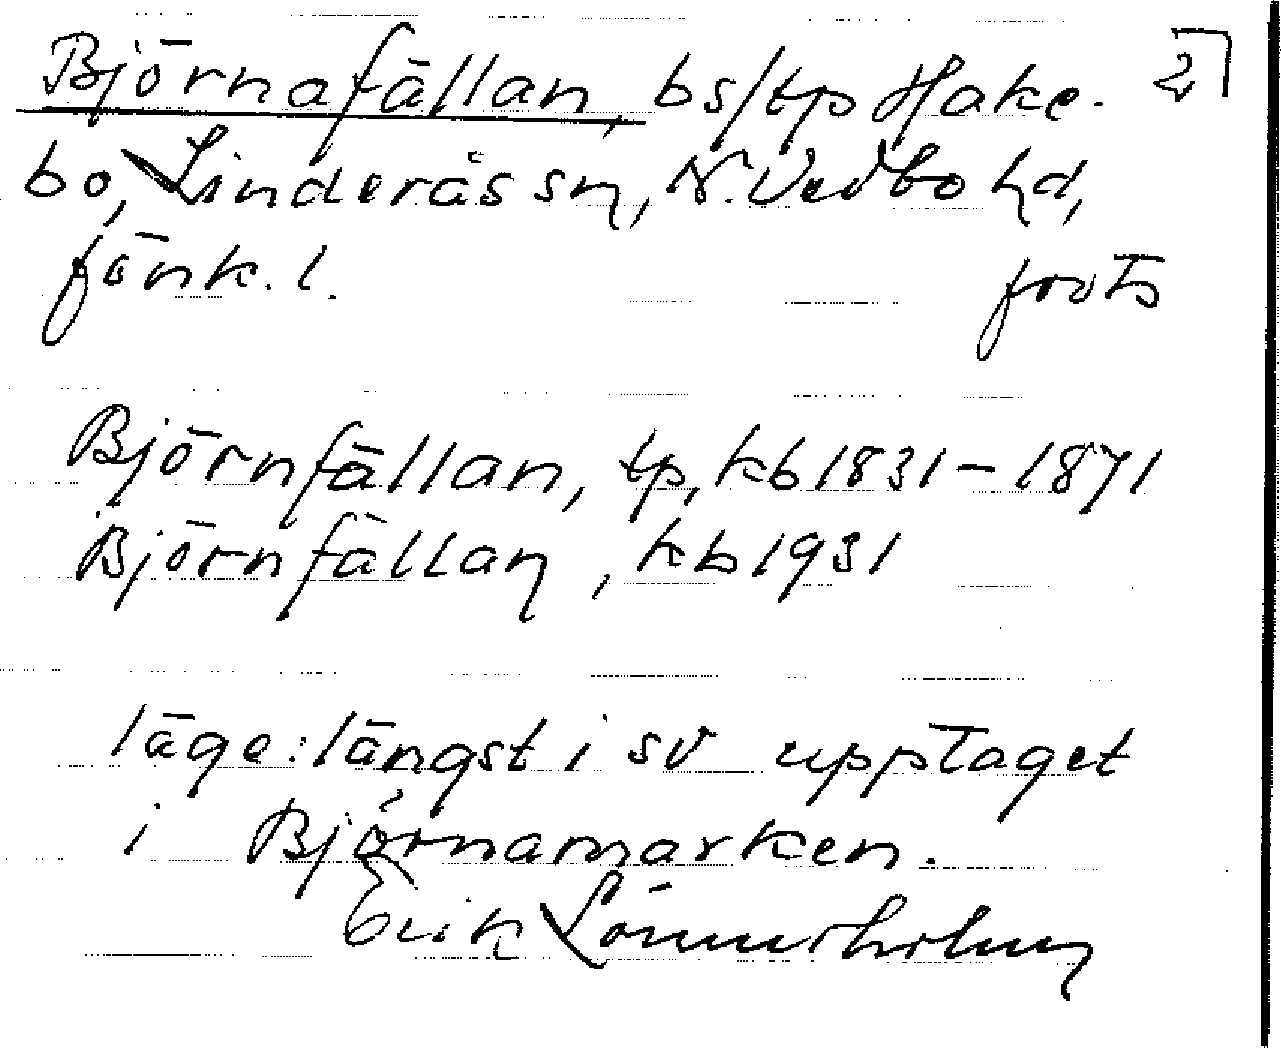 Björnafällan, bs/tp Hake- 2
bo, Linderås sn, N. Vedbo hd,
Jönk. l. forts
Björnfällan, tp, kb 1831-1871
Björnfällan, kb 1931
läge: längst i sv upptaget
i Björnamarken.
Erik Lönnerholm